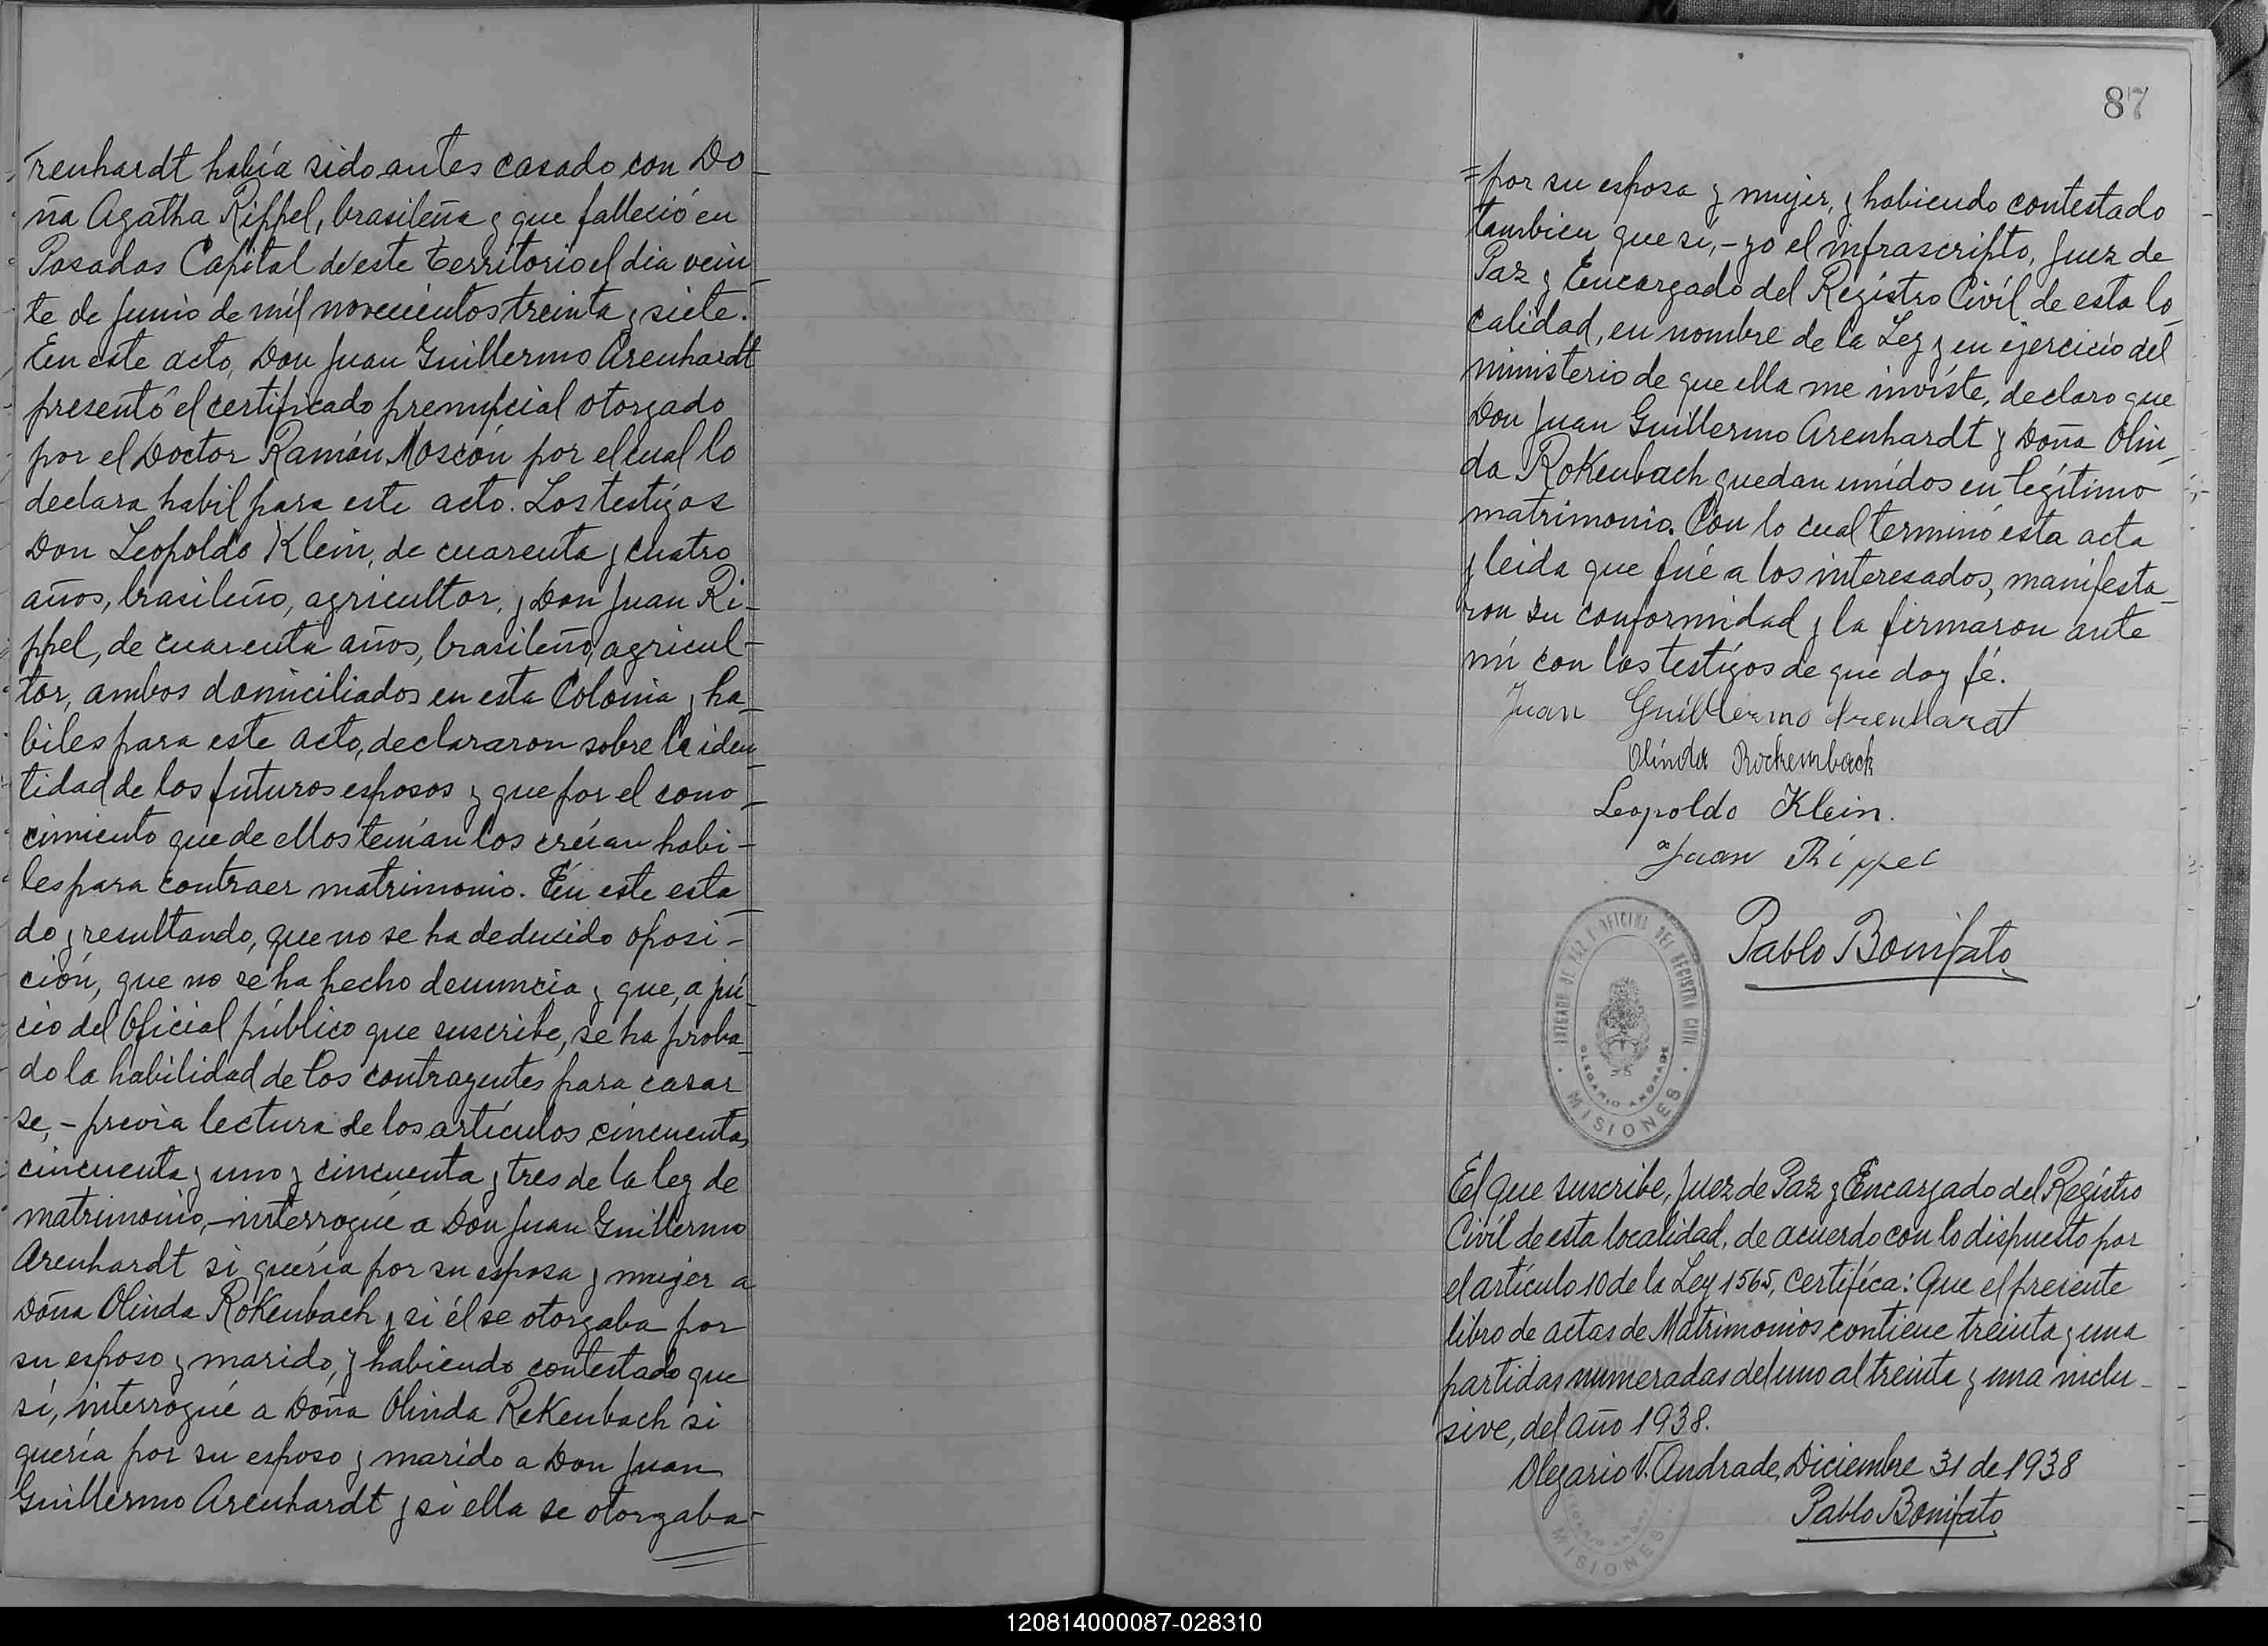 renhardt había sido antes casado con Do-
ña Agatha Rippel, brasileña y que falleció en
Posadas Capital de este territorio el dia vein-
te de Junio de mil novecientos treinta y siete.
En este acto, Don Juan Guillermo Arenhardt
presentó el certificado prenupcial otorgado
por el Doctor Ramón Moscón por el cual lo
declara habil para este acto. Los testigos
Don Leopoldo Klein, de cuarenta y cuatro
años, brasileño, agricultor, y Don Juan Ri-
ppel, de cuarenta años, brasileño, agricul-
tor, ambos domiciliados en esta Colonia y ha-
biles para este acto, declararon sobre la iden-
tidad de los futuros esposos y que por el cono-
cimiento que de ellos tenían los creían habi-
les para contraer matrimonio. En este esta-
do y resultando, que no se ha deducido oposi-
ción, que no se ha hecho denuncia y que, a jui-
cio del Oficial público que suscribe, se ha proba-
do la habilidad de los contrayentes para casar
se, - previa lectura de los artículos cincuenta,
cincuenta y uno y cincuenta y tres de la ley de
matrimonio, - interrogué a Don Juan Guillermo
Arenhardt si quería por su esposa y mujer a
Doña Olinda Rokenbach y si él se otorgaba por
su esposo y marido, y habiendo contestado que
sí, interrogué a Doña Olinda Rokenbach si
quería por su esposo y marido a Don Juan
Guillermo Arenhardt y si ella se otorgaba-
87
=por su esposa y mujer, y habiendo contestado
tambien que si, - yo el infrascripto, Juez de
Paz y Encargado del Registro Civíl de esta lo-
calidad, en nombre de la Ley y en ejercicio del
ministerio de que ella me inviste, declaro que
Don Juan Guillermo Arenhardt y Doña Olin-
da Rokenbach quedan unídos en legítimo
matrimonio. Con lo cual terminó esta acta
y leida que fué a los interesados, manifesta-
ron su conformidad y la firmaron ante
mí con los testigos de que doy fé.
Juan Guillermo Arenhardt
Olinda Rockembach
Leopoldo Klein.
Juan Rippel
Pablo Bonifato
JUZGADO DE PAZ Y OFICINA DEL REGISTRO CIVIL
OLEGARIO ANDRADE
MISIONES
El que suscribe, Juez de Paz y Encargado del Regístro
Civíl de esta localidad, de acuerdo con lo dispuesto por
el artículo 10 de la Ley 1565, certifíca: Que el presente
libro de actas de Matrimonios contiene treinta y una
partidas numeradas del uno al treinta y una inclu-
sive, del año 1938.
Olegario V. Andrade, Diciembre 31 de 1938
Pablo Bonifato
MISIONES
120814000087-028310